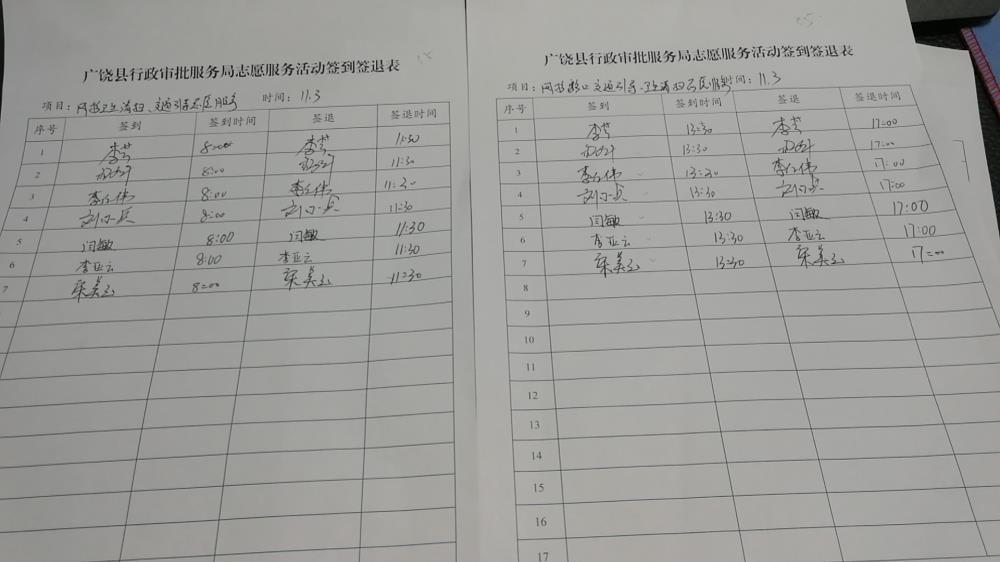 广饶县行政审批服务局志愿服务活动签到签退表
项目：网格卫生清扫、交通引导志愿服务 时间：11.3
序号 签到 签到时间 签退 签退时间
1 李芸 8:00 李芸 11:30
2 8:00 11:30
3 李红伟 8:00 李红伟 11:30
4 刘小兵 8:00 刘小兵 11:30
5 闫敏 8:00 闫敏 11:30
6 李亚云 8:00 李亚云 11:30
7 梁美玉 8:00 梁美玉 11:30
广饶县行政审批服务局志愿服务活动签到签退表
项目：网格路口交通引导、卫生清扫志愿服务 时间：11.3
序号 签到 签到时间 签退 签退时间
1 李芸 13:30 李芸 17:00
2 13:30 17:00
3 李红伟 13:30 李红伟 17:00
4 刘小兵 13:30 刘小兵 17:00
5 闫敏 13:30 闫敏 17:00
6 李亚云 13:30 李亚云 17:00
7 梁美玉 13:30 梁美玉 17:00
8
9
10
11
12
13
14
15
16
17